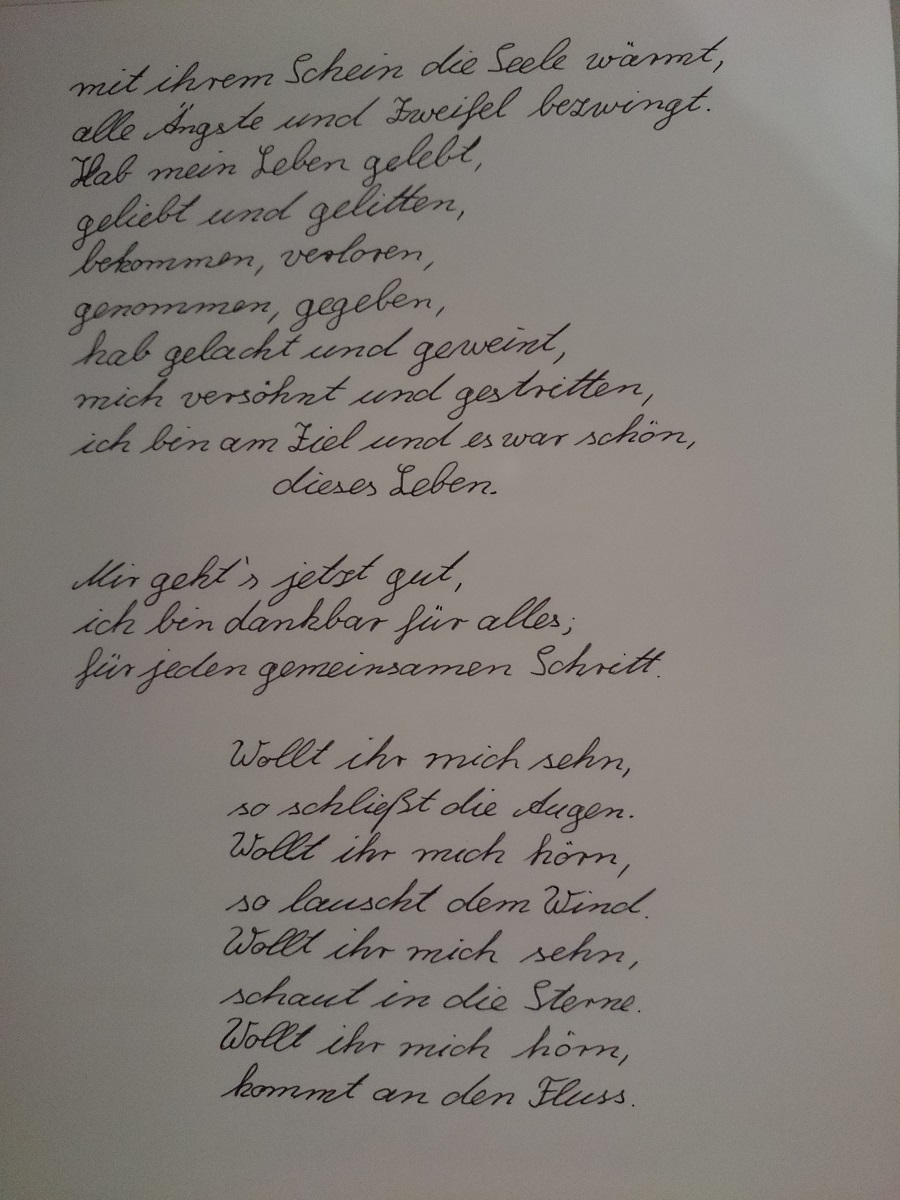 mit ihrem Schein die Seele wärmt,
alle Ängste und Zweifel bezwingt.
Hab mein Leben gelebt,
geliebt und gelitten,
bekommen, verloren,
genommen, gegeben,
hab gelacht und geweint,
mich versöhnt und gestritten,
ich bin am Ziel und es war schön,
dieses Leben.
Mir geht's jetzt gut,
ich bin dankbar für alles;
für jeden gemeinsamen Schritt.
Wollt ihr mich sehn,
so schließt die Augen.
Wollt ihr mich hörn,
so lauscht dem Wind.
Wollt ihr mich sehn,
schaut in die Sterne.
Wollt ihr mich hörn,
kommt an den Fluss.